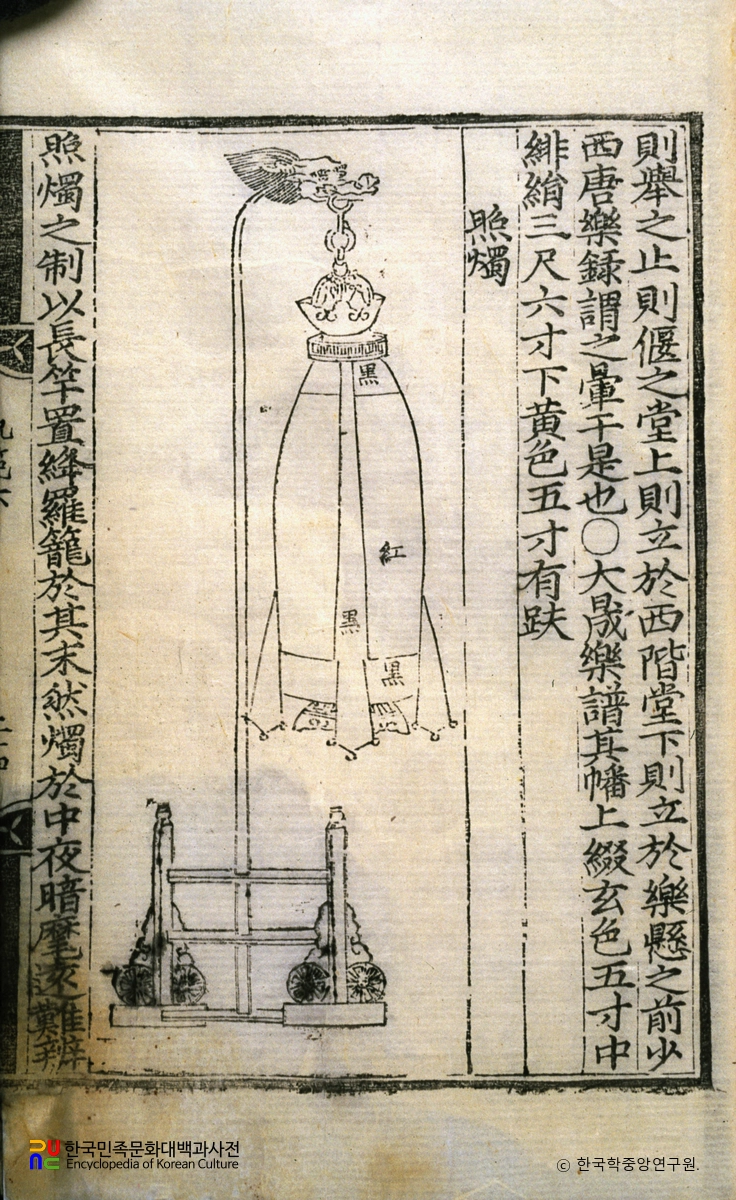 則舉之止則偃之堂上則立於西階堂下則立於樂懸之前少
西唐樂錄謂之暈干是也〇大晟樂譜其幡上綴玄色五寸中
緋綃三尺六寸下黄色五寸有趺
照燭
黑
紅
黑
黑
照燭之制以長竿置絳羅籠於其末然燭於中夜暗麾遠難辨
한국민족문화대백과사전
Encyclopedia of Korean Culture
© 한국학중앙연구원.